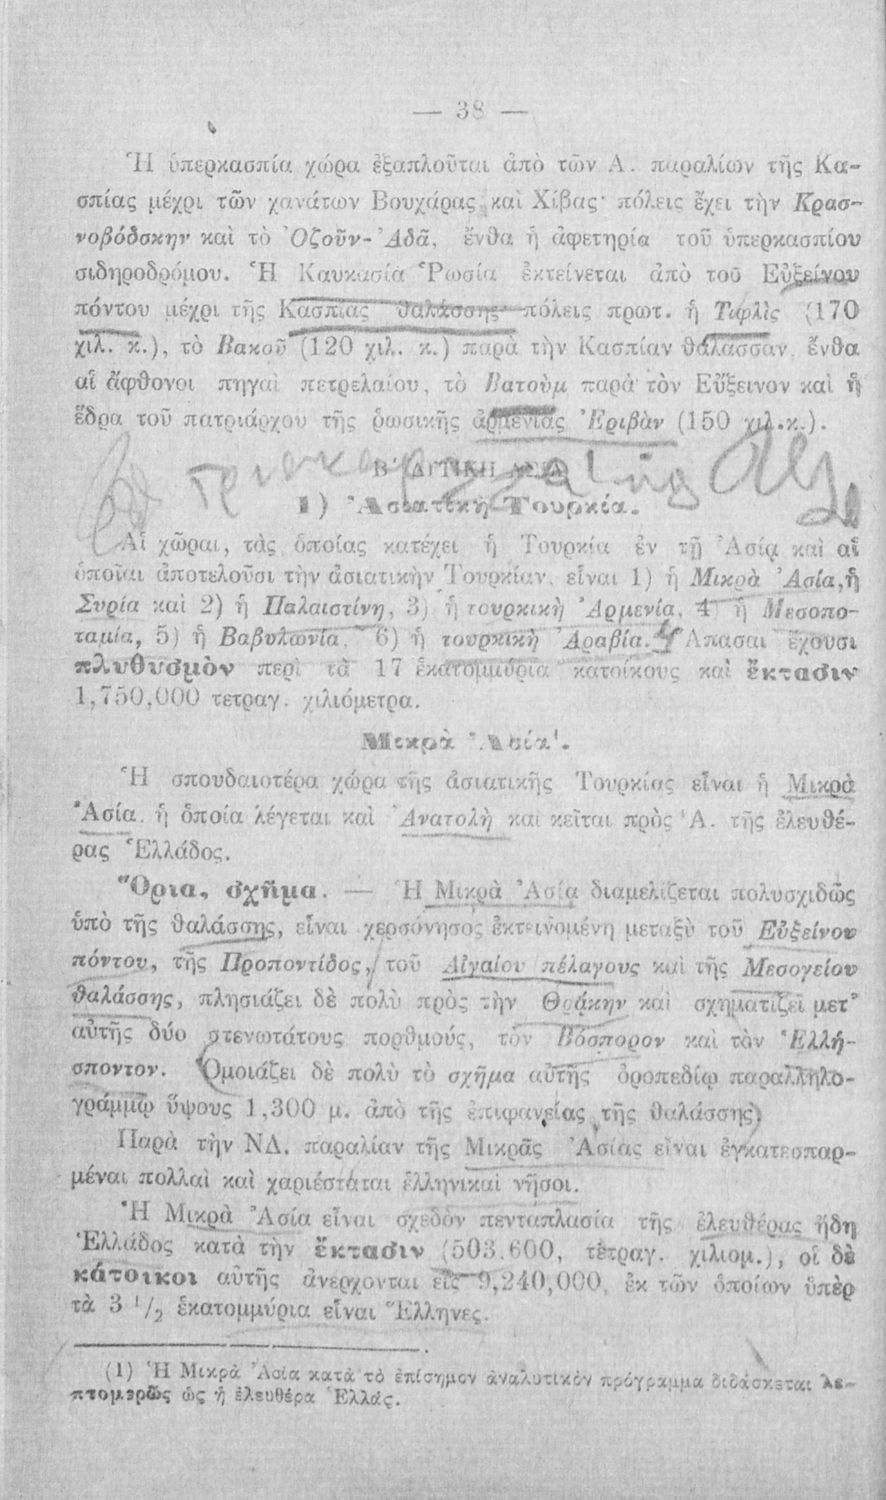 — 38 —
Ἡ ὑπερκασπία χώρα ἐξαπλοῦται ἀπὸ τῶν Α. παραλίων τῆς Κα-
σπίας μέχρι τῶν χανάτων Βουχάρας καὶ Χίβας· πόλεις ἔχει τὴν Κρασ-
νοβόδσκην καὶ τὸ Ὀζοῦν-Ἀδᾶ, ἔνθα ἡ ἀφετηρία τοῦ ὑπερκασπίου
σιδηροδρόμου. Ἡ Καυκασία Ῥωσία ἐκτείνεται ἀπὸ τοῦ Εὐξείνου
πόντου μέχρι τῆς Κασπίας θαλάσσης πόλεις πρωτ. ἡ Τιφλὶς (170
χιλ. κ.), τὸ Βακοῦ (120 χιλ. κ.) παρὰ τὴν Κασπίαν θάλασσαν, ἔνθα
αἱ ἄφθονοι πηγαὶ πετρελαίου, τὸ Βατοὺμ παρὰ τὸν Εὔξεινον καὶ ἡ
ἕδρα τοῦ πατριάρχου τῆς ῥωσικῆς ἀρμενίας Ἐριβὰν (150 χιλ.κ.).
Β΄ ΔΥΤΙΚΗ ΑΣΙΑ
1) Ἀσιατικὴ Τουρκία.
Αἱ χῶραι, τὰς ὁποίας κατέχει ἡ Τουρκία ἐν τῇ Ἀσίᾳ καὶ αἱ
ὁποῖαι ἀποτελοῦσι τὴν ἀσιατικὴν Τουρκίαν, εἶναι 1) ἡ Μικρὰ Ἀσία, ἡ
Συρία καὶ 2) ἡ Παλαιστίνη, 3) ἡ τουρκικὴ Ἀρμενία, 4) ἡ Μεσοπο-
ταμία, 5) ἡ Βαβυλωνία, 6) ἡ τουρκικὴ Ἀραβία. Ἅπασαι ἔχουσι
πλυθυσμὸν περὶ τὰ 17 ἑκατομμύρια κατοίκους καὶ ἔκτασιν
1,750,000 τετραγ. χιλιόμετρα.
Μικρὰ Ἀσία¹.
Ἡ σπουδαιοτέρα χώρα τῆς ἀσιατικῆς Τουρκίας εἶναι ἡ Μικρὰ
Ἀσία, ἡ ὁποία λέγεται καὶ Ἀνατολὴ καὶ κεῖται πρὸς Ἀ. τῆς ἐλευθέ-
ρας Ἑλλάδος.
Ὅρια, σχῆμα. — Ἡ Μικρὰ Ἀσία διαμελίζεται πολυσχιδῶς
ὑπὸ τῆς θαλάσσης, εἶναι χερσόνησος ἐκτεινομένη μεταξὺ τοῦ Εὐξείνου
πόντου, τῆς Προποντίδος, τοῦ Αἰγαίου πέλαγους καὶ τῆς Μεσογείου
θαλάσσης, πλησιάζει δὲ πολὺ πρὸς τὴν Θράκην καὶ σχηματίζει μετ᾽
αὐτῆς δύο στενωτάτους πορθμούς, τὸν Βόσπορον καὶ τὸν Ἑλλή-
σποντον. Ὁμοιάζει δὲ πολὺ τὸ σχῆμα αὐτῆς ὀροπεδίῳ παραλληλο-
γράμμῳ ὕψους 1,300 μ. ἀπὸ τῆς ἐπιφανείας τῆς θαλάσσης.
Παρὰ τὴν ΝΔ. παραλίαν τῆς Μικρᾶς Ἀσίας εἶναι ἐγκατεσπαρ-
μέναι πολλαὶ καὶ χαριέσταται ἑλληνικαὶ νῆσοι.
Ἡ Μικρὰ Ἀσία εἶναι σχεδὸν πενταπλασία τῆς ἐλευθέρας ἤδη
Ἑλλάδος κατὰ τὴν ἔκτασιν (503.600, τετραγ. χιλιομ.), οἱ δὲ
κάτοικοι αὐτῆς ἀνέρχονται εἰς 9,240,000, ἐκ τῶν ὁποίων ὑπὲρ
τὰ 3 1/2 ἑκατομμύρια εἶναι Ἕλληνες.
(1) Ἡ Μικρὰ Ἀσία κατὰ τὸ ἐπίσημον ἀναλυτικὸν πρόγραμμα διδάσκεται λε-
πτομερῶς ὡς ἡ ἐλευθέρα Ἑλλάς.